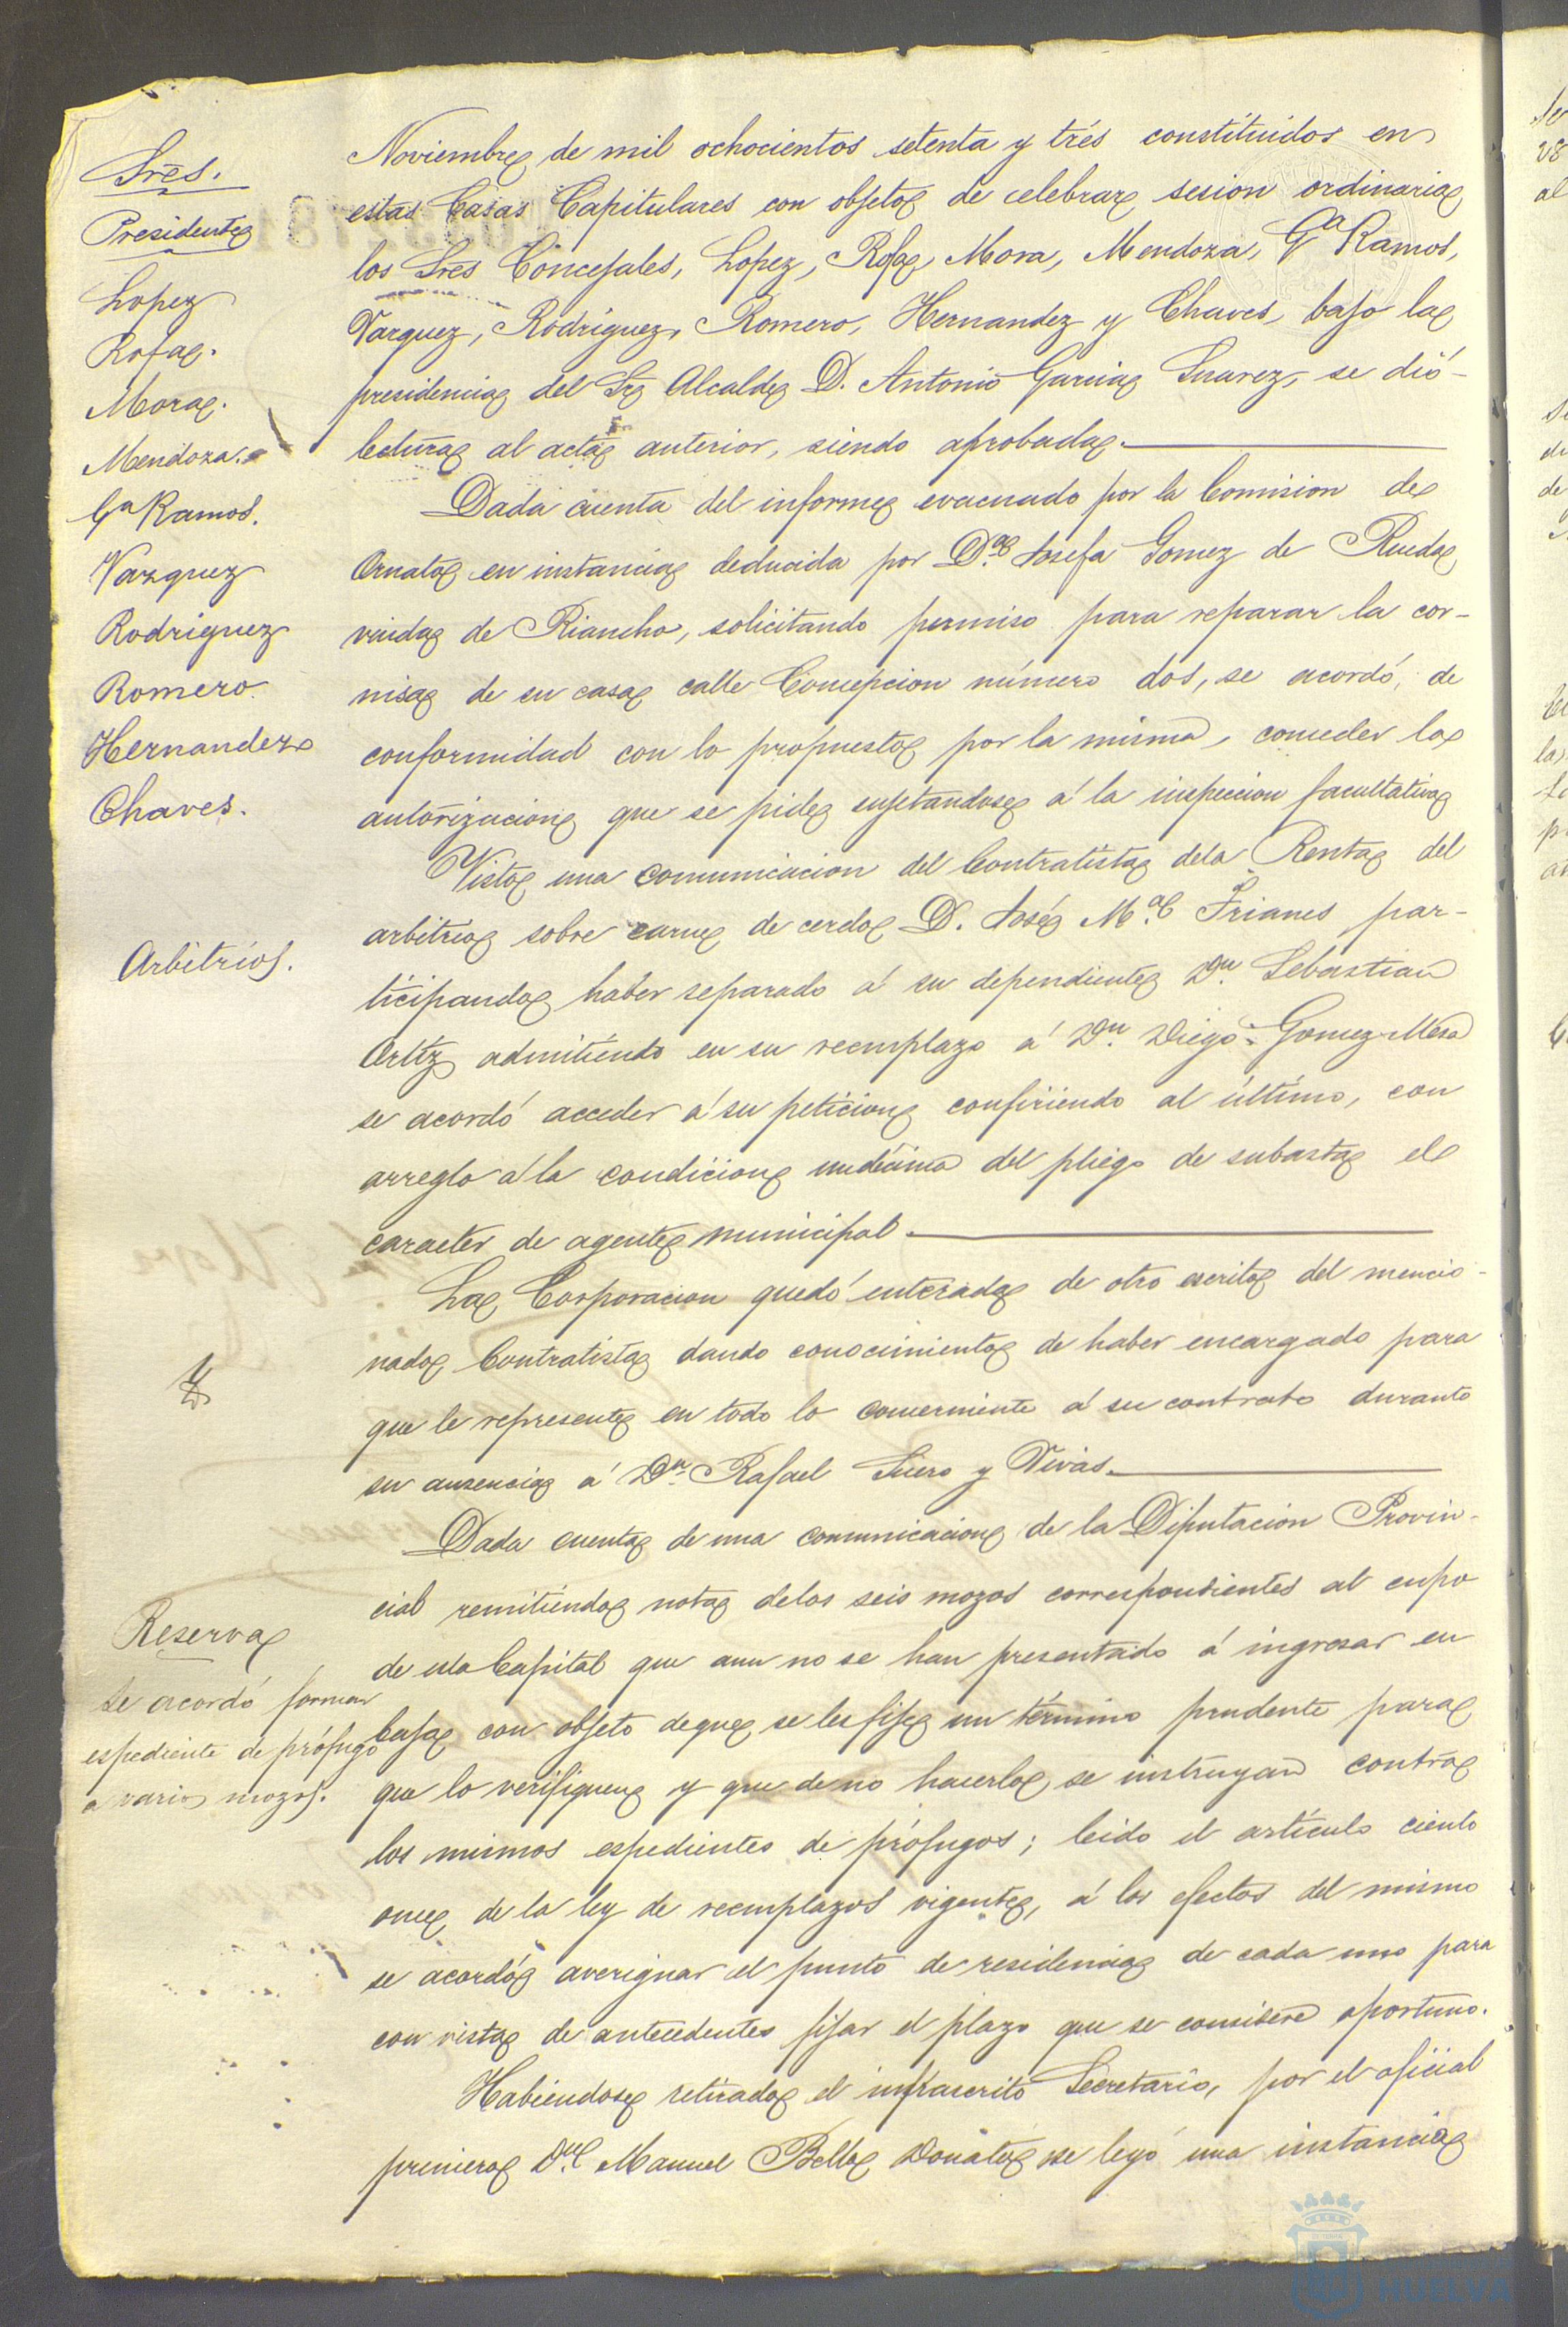 Sres.
Presidente
Lopez
Rofa.
Mora.
Mendoza.
Ga Ramos.
Vazquez
Rodriguez
Romero.
Hernandez
Chaves.
Noviembre de mil ochocientos setenta y trés constituidos en
estas Casas Capitulares con objeto de celebrar sesion ordinaria
los Sres Concejales, Lopez, Rofa, Mora, Mendoza, Ga Ramos,
Vazquez, Rodriguez, Romero, Hernandez y Chaves, bajo la
presidencia del Sr Alcalde D. Antonio Garcia Suarez, se dió
lectura al acta anterior, siendo aprobada.
Dada cuenta del informe evacuado por la Comision de
Ornato en instancia deducida por D.ª Josefa Gomez de Rueda,
viuda de Riancho, solicitando permiso para reparar la cor-
nisa de su casa calle Concepcion número dos, se acordó, de
conformidad con lo propuesto por la misma, conceder la
autorizacion que se pide sujetandose á la inspeccion facultativa
Arbitrios.
Visto una comunicacion del Contratista dela Renta del
arbitrio sobre carne de cerdo D. José M.ª Frianes par-
ticipando haber separado á su dependiente Dn. Sebastian
Ortiz admitiendo en su reemplazo á Dn. Diego Gomez Mesa
se acordó acceder á su peticion confiriendo al último, con
arreglo á la condicion undécima del pliego de subasta el
caracter de agente municipal.
La Corporacion quedó enterada de otro escrito del mencio-
nado Contratista dando conocimiento de haber encargado para
que le represente en todo lo concerniente á su contrato durante
su ausencia á Dn. Rafael Suero y Vivas.
Reserva
se acordó formar
espediente de prófugo
a varios mozos.
Dada cuenta de una comunicacion de la Diputacion Provin-
cial remitiendo nota delos seis mozos correspondientes al cupo
de esta Capital que aun no se han presentado á ingresar en
Caja con objeto deque se les fije un término prudente para
que lo verifiquen y que de no hacerlo, se instruyan contra
los mismos espedientes de prófugos; leido el artículo ciento
once de la ley de reemplazos vigente, á los efectos del mismo
se acordó averiguar el punto de residencia de cada uno para
con vista de antecedentes fijar el plazo que se considere oportuno.
Habiendose retirado el infrascrito Secretario, por el oficial
primero Dn. Manuel Bello Donate se leyó una instancia
HUELVA